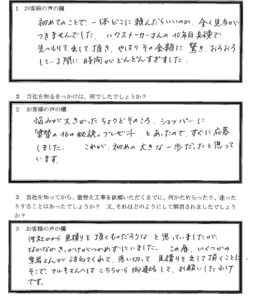 1 お客様の声の欄
初めてのことで、一体どこに頼んだらいいのか、全く見当が
つきませんでした。ハウスメーカーさんの10年目点検で
見つもりを出して頂き、やはりその金額に驚き、おろおろ
している間に時間がどんどんすぎました。
2 当社を知るきっかけは、何でしたでしょうか？
2 お客様の声の欄
悩みが大きかったちょうどそのころ、ショッパーに
プレゼント とあったので、すぐに応募
しました。これが、初めの大きな一歩だったと思って
います
3 当社を知ってから、塗替え工事を依頼いただくまでに、何かためらったり、迷った
りすることはあったでしょうか？ 又、それはどのようにして解消されましたでしょう
か？
3 お客様の声の欄
何社から見積りを頂くものだろうな と思っていましたが、
なかなかきっかけがつかめずにいました。この春、いくつかの
業者さんが訪ねてくれて、思い切って見積りを出して頂くことに。
そこで、マルキさんへはこちらから御連絡して、お願いしたわけ
です。